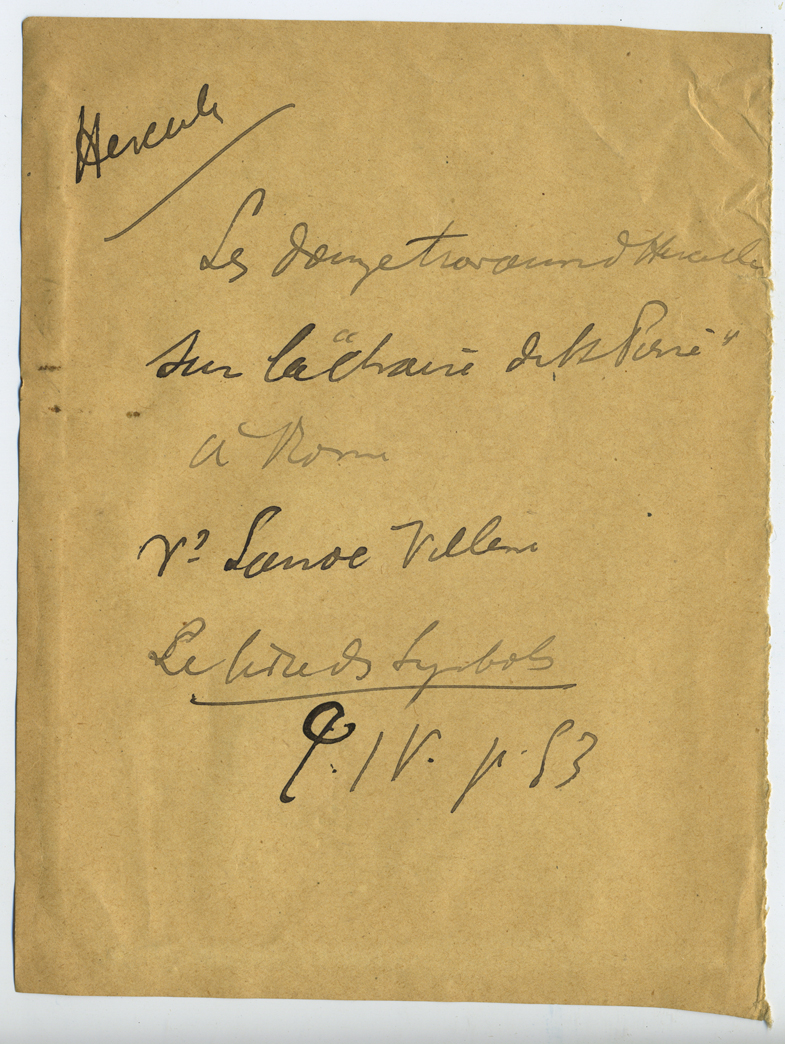 Hercule
Les douze travaux d'Hercule
sur la "chaire de St Pierre"
à Rome
Vr Lanoe Villène
Le livre des Symboles
T. IV. p. 53